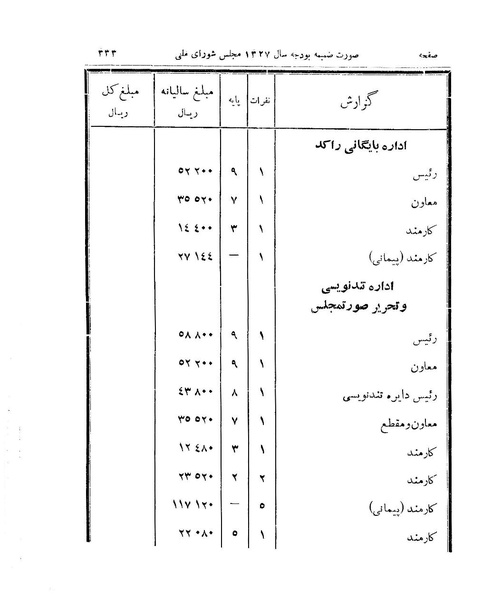 صفحه صورت ضمیمه بودجه سال ۱۳۲۷ مجلس شورای ملی ۳۳۳
گزارش نفرات پایه مبلغ سالیانه ریال مبلغ کل ریال
اداره بایگانی راکد
رئیس ۱ ۹ ۵۲۲۰۰
معاون ۱ ۷ ۳۵۵۲۰
کارمند ۱ ۳ ۱۴۴۰۰
کارمند (پیمانی) ۱ — ۲۷۱۴۴
اداره تندنویسی
و تحریر صورتمجلس
رئیس ۱ ۹ ۵۸۸۰۰
معاون ۱ ۹ ۵۲۲۰۰
رئیس دایره تندنویسی ۱ ۸ ۴۳۸۰۰
معاون و مقطع ۱ ۷ ۳۵۵۲۰
کارمند ۱ ۳ ۱۲۴۸۰
کارمند ۲ ۲ ۲۳۵۲۰
کارمند (پیمانی) ۵ — ۱۱۷۱۲۰
کارمند ۱ ۵ ۲۲۰۸۰